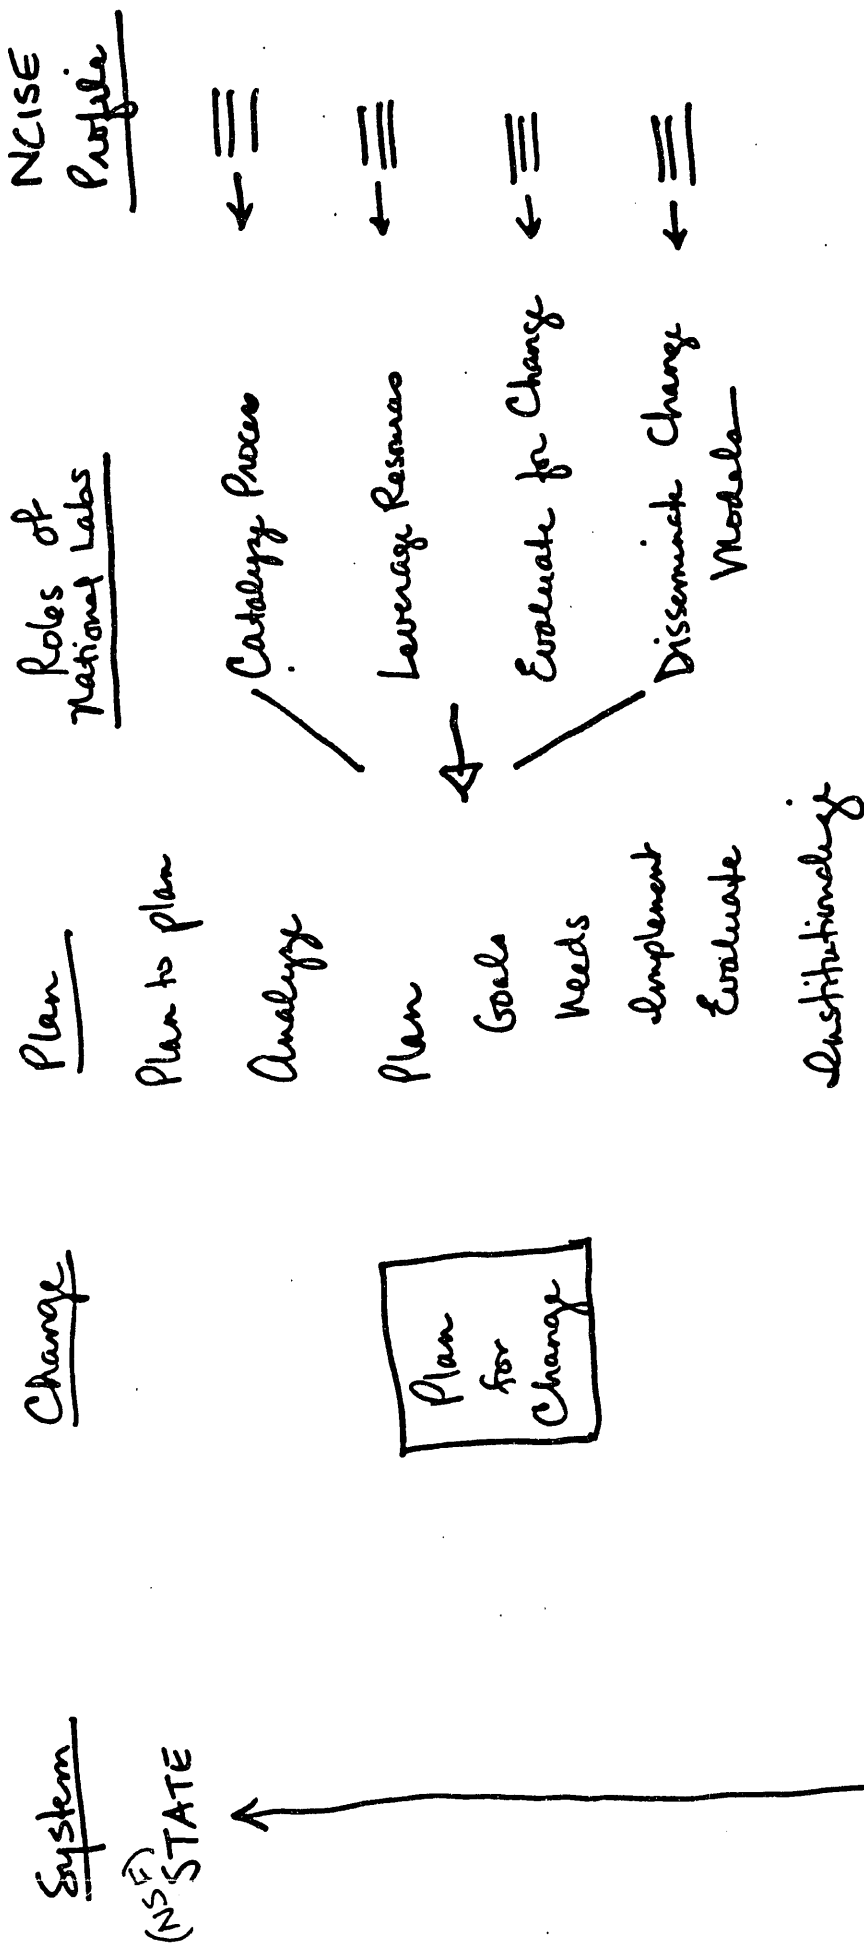 System
(NSF)
STATE
Change
Plan
for
Change
Plan
Plan to plan
Analyze
Plan
Goals
Needs
Implement
Evaluate
Institutionalize
Roles of
National Labs
Catalyze Process
Leverage Resources
Evaluate for Change
Disseminate Change
Models
NCISE
Profile